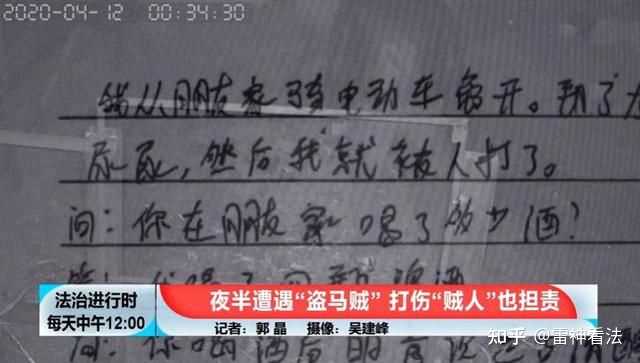 2020-04-12 00:34:30
我从朋友家骑电动车离开。
尿尿,然后我就被人打了。
问:你在朋友家喝了多少酒?
法治进行时
每天中午12:00
夜半遭遇“盗马贼” 打伤“贼人”也担责
记者:郭晶 摄像:吴建峰
问:你喝酒
知乎 @雷神看法